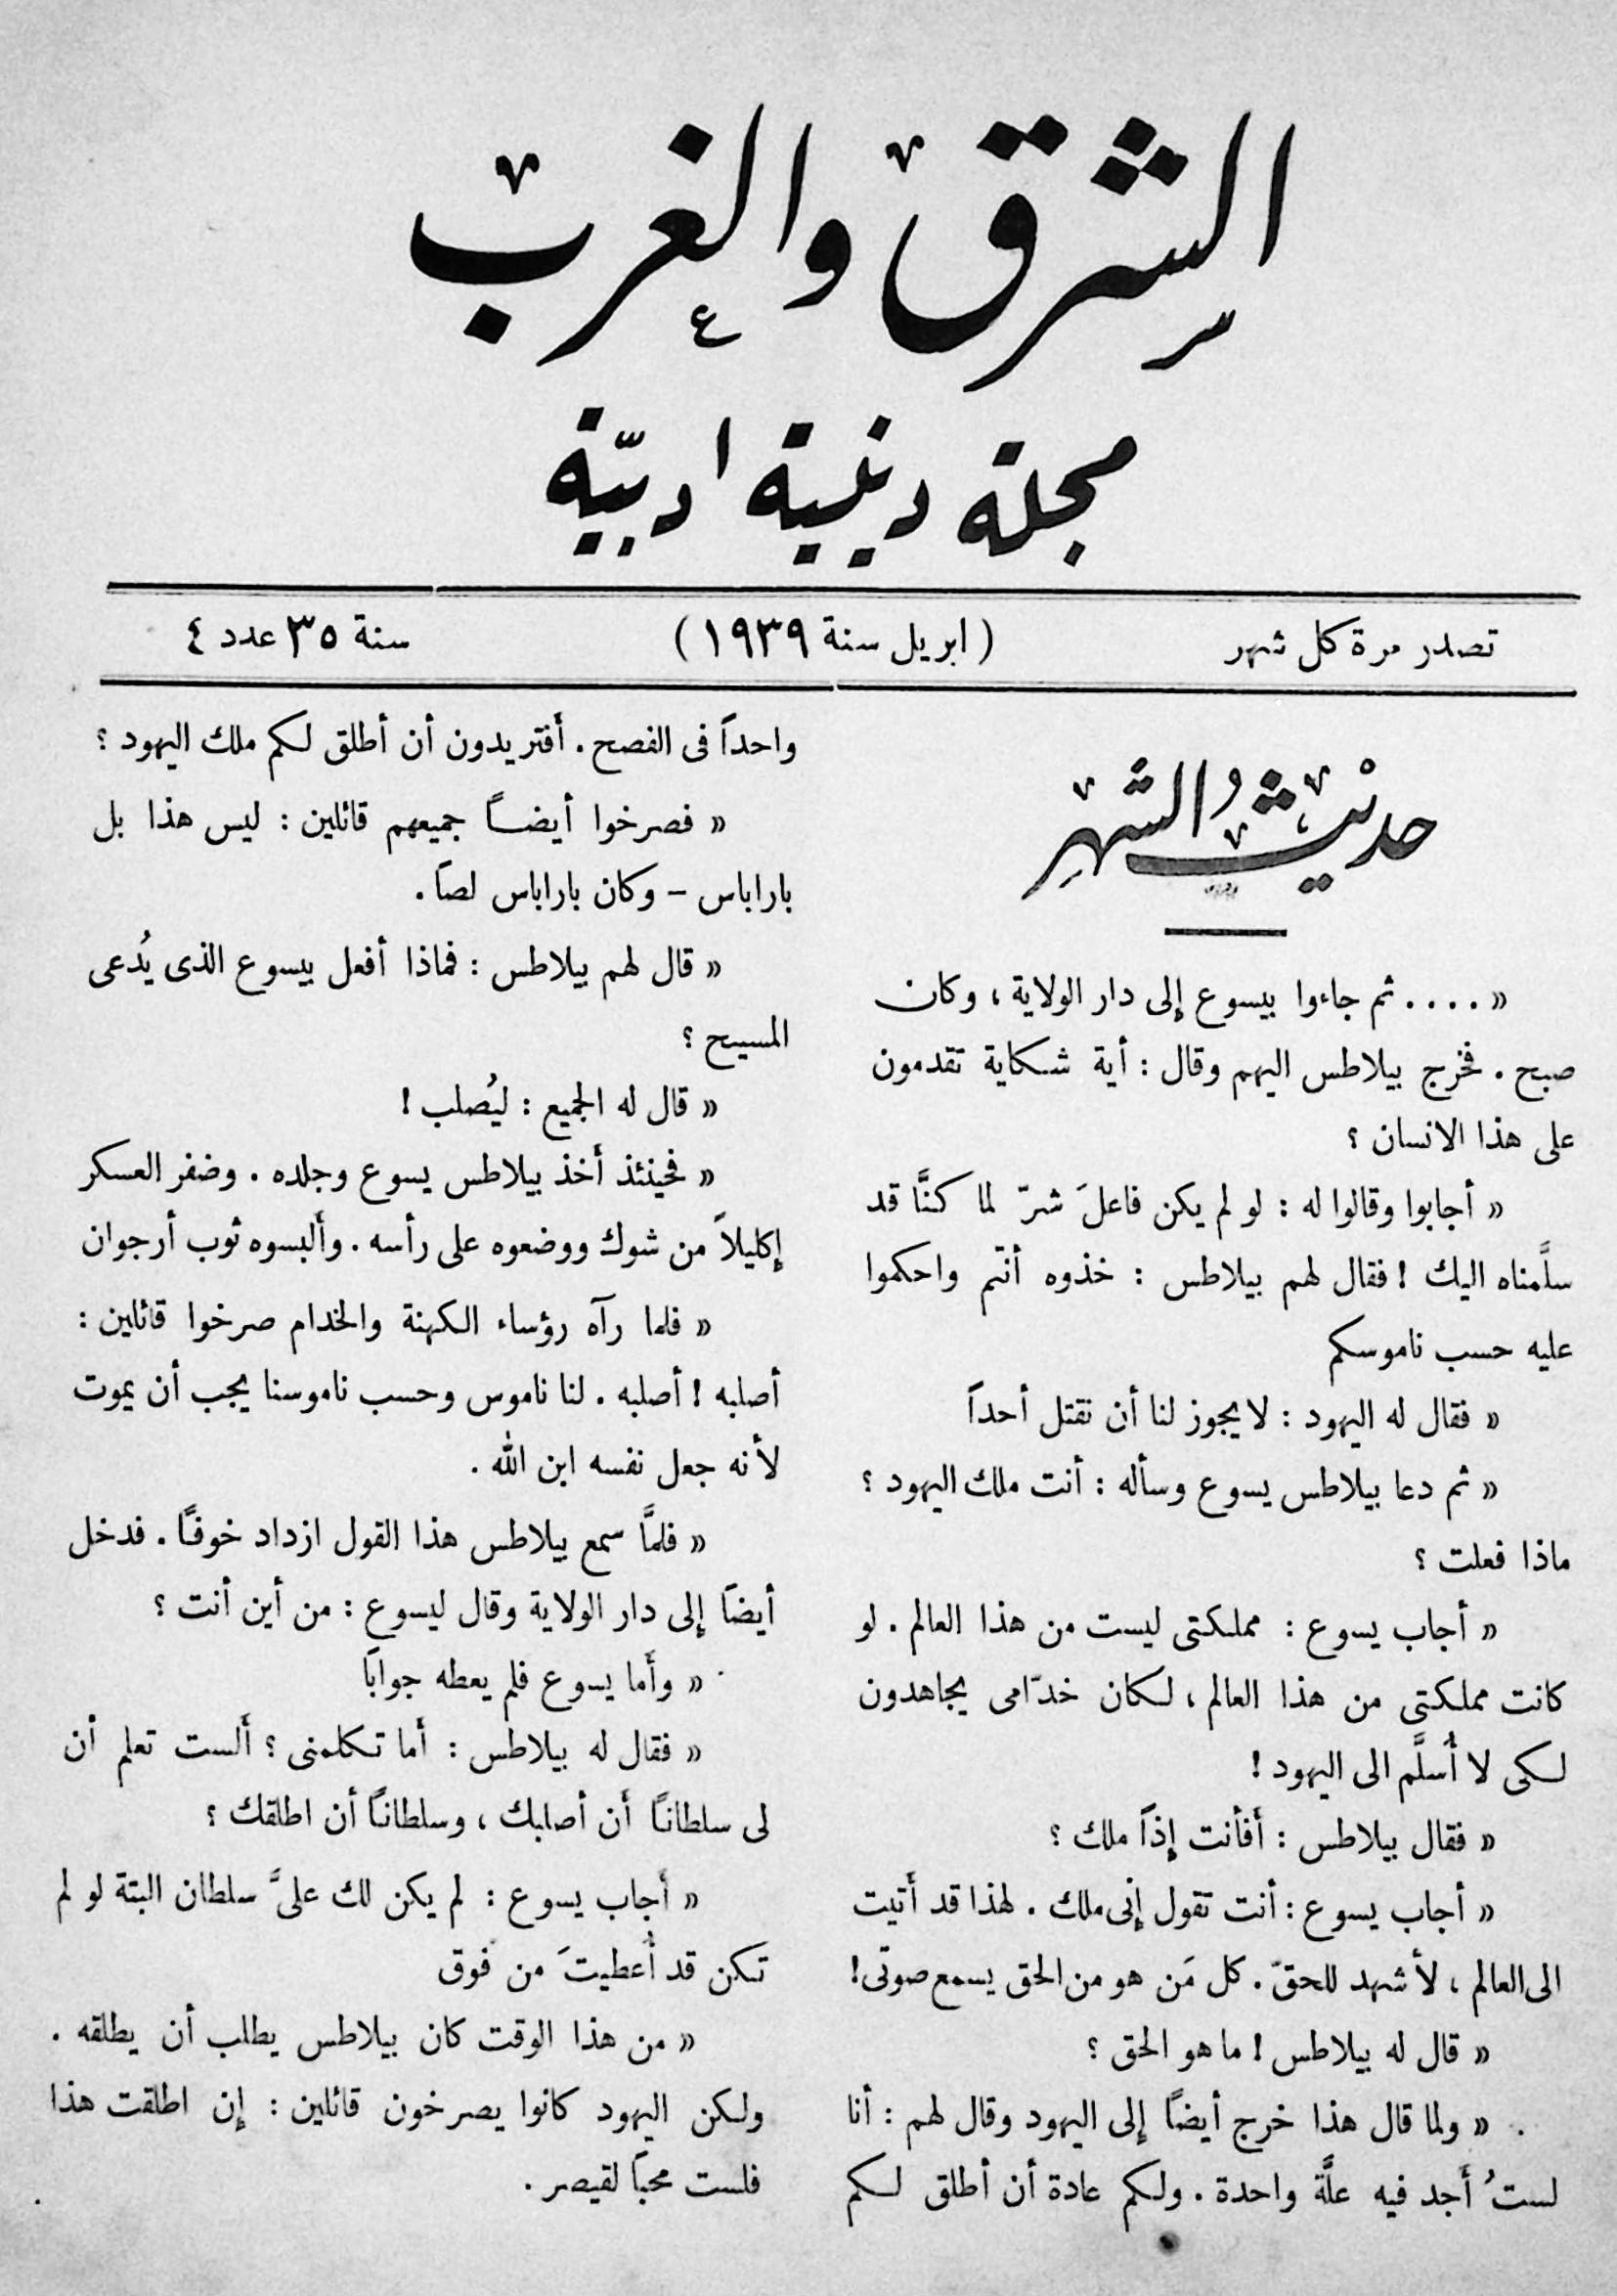 الشرق والغرب
مجلة دينية ادبيّة
تصدر مرة كل شهر
( ابريل سنة ١٩٣٩ )
سنة ٣٥ عدد ٤
حديْثُ الشهرِ
« . . . . ثم جاءوا بيسوع إلى دار الولاية ، وكان
صبح . فخرج بيلاطس اليهم وقال : أية شكاية تقدمون
على هذا الانسان ؟
« أجابوا وقالوا له : لو لم يكن فاعلَ شرّ لما كنَّا قد
سلَّمناه اليك ! فقال لهم بيلاطس : خذوه أنتم واحكموا
عليه حسب ناموسكم
« فقال له اليهود : لا يجوز لنا أن نقتل أحداً
« ثم دعا بيلاطس يسوع وسأله : أنت ملك اليهود ؟
ماذا فعلت ؟
« أجاب يسوع : مملكتى ليست من هذا العالم . لو
كانت مملكتى من هذا العالم ، لكان خدّامى يجاهدون
لكى لا أُسلَّم الى اليهود !
« فقال بيلاطس : أَفأنت إِذاً ملك ؟
« أجاب يسوع : أنت تقول إنى ملك . لهذا قد أَتيت
الى العالم ، لأشهد للحقّ . كل مَن هو من الحق يسمع صوتى !
« قال له بيلاطس ! ما هو الحق ؟
« ولما قال هذا خرج أيضاً إلى اليهود وقال لهم : أنا
لستُ أَجد فيه علَّة واحدة . ولكم عادة أن أطلق لكم
واحداً فى الفصح . أَفتريدون أن أطلق لكم ملك اليهود ؟
« فصرخوا أيضاً جميعهم قائلين : ليس هذا بل
باراباس – وكان باراباس لصاً .
« قال لهم بيلاطس : فماذا أفعل بيسوع الذى يُدعى
المسيح ؟
« قال له الجميع : ليُصلب !
« فحينئذ أَخذ بيلاطس يسوع وجلده . وضفر العسكر
إكليلاً من شوك ووضعوه على رأسه . وأَلبسوه ثوب أرجوان
« فلما رآه رؤساء الكهنة والخدام صرخوا قائلين :
أصلبه ! أصلبه . لنا ناموس وحسب ناموسنا يجب أن يموت
لأنه جعل نفسه ابن الله .
« فلمَّا سمع بيلاطس هذا القول ازداد خوفاً . فدخل
أيضاً إلى دار الولاية وقال ليسوع : من أين أنت ؟
« وأَما يسوع فلم يعطه جواباً
« فقال له بيلاطس : أَما تكلمنى ؟ أَلست تعلم أن
لى سلطاناً أَن أصلبك ، وسلطاناً أن اطلقك ؟
« أجاب يسوع : لم يكن لك علىَّ سلطان البتة لو لم
تكن قد أُعطيتَ من فوق
« من هذا الوقت كان بيلاطس يطلب أن يطلقه .
ولكن اليهود كانوا يصرخون قائلين : إن اطلقت هذا
فلست محباً لقيصر .